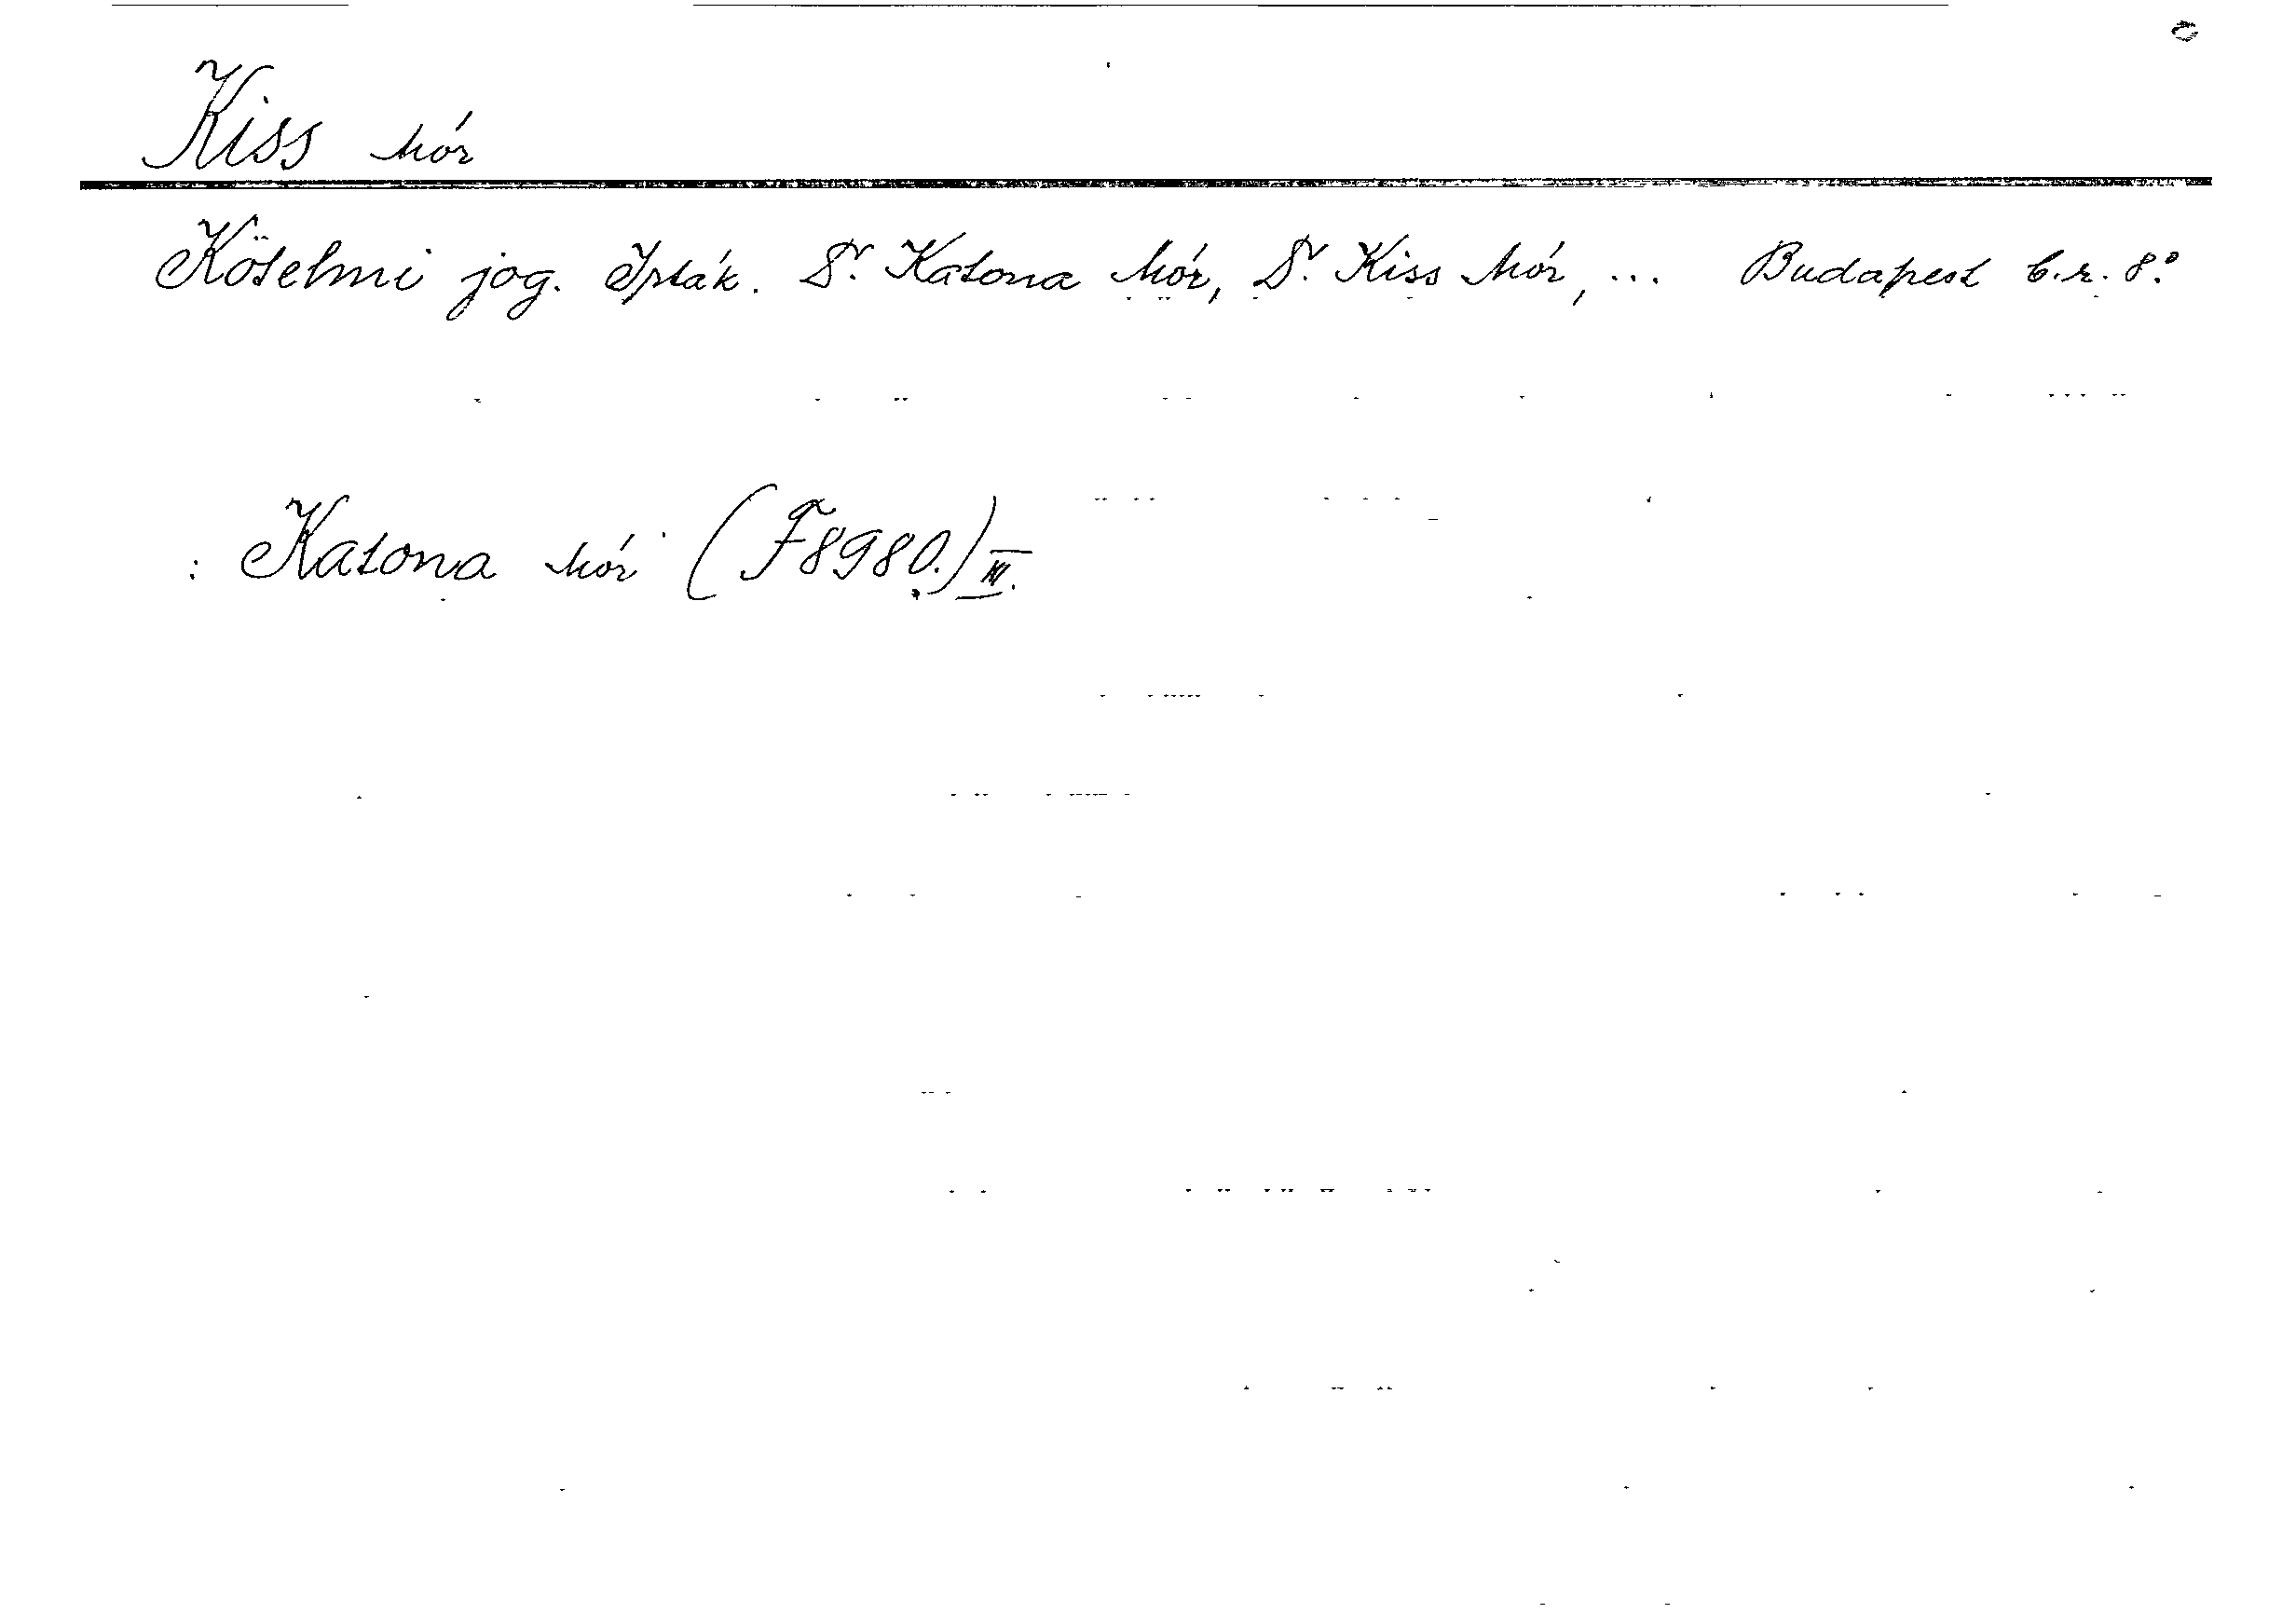 Kiss Mór
Kötelmi jog. Irták. Dr. Katona Mór, Dr. Kiss Mór, ... Budapest é.n. 8°.
: Katona Mór (F8980.) III.